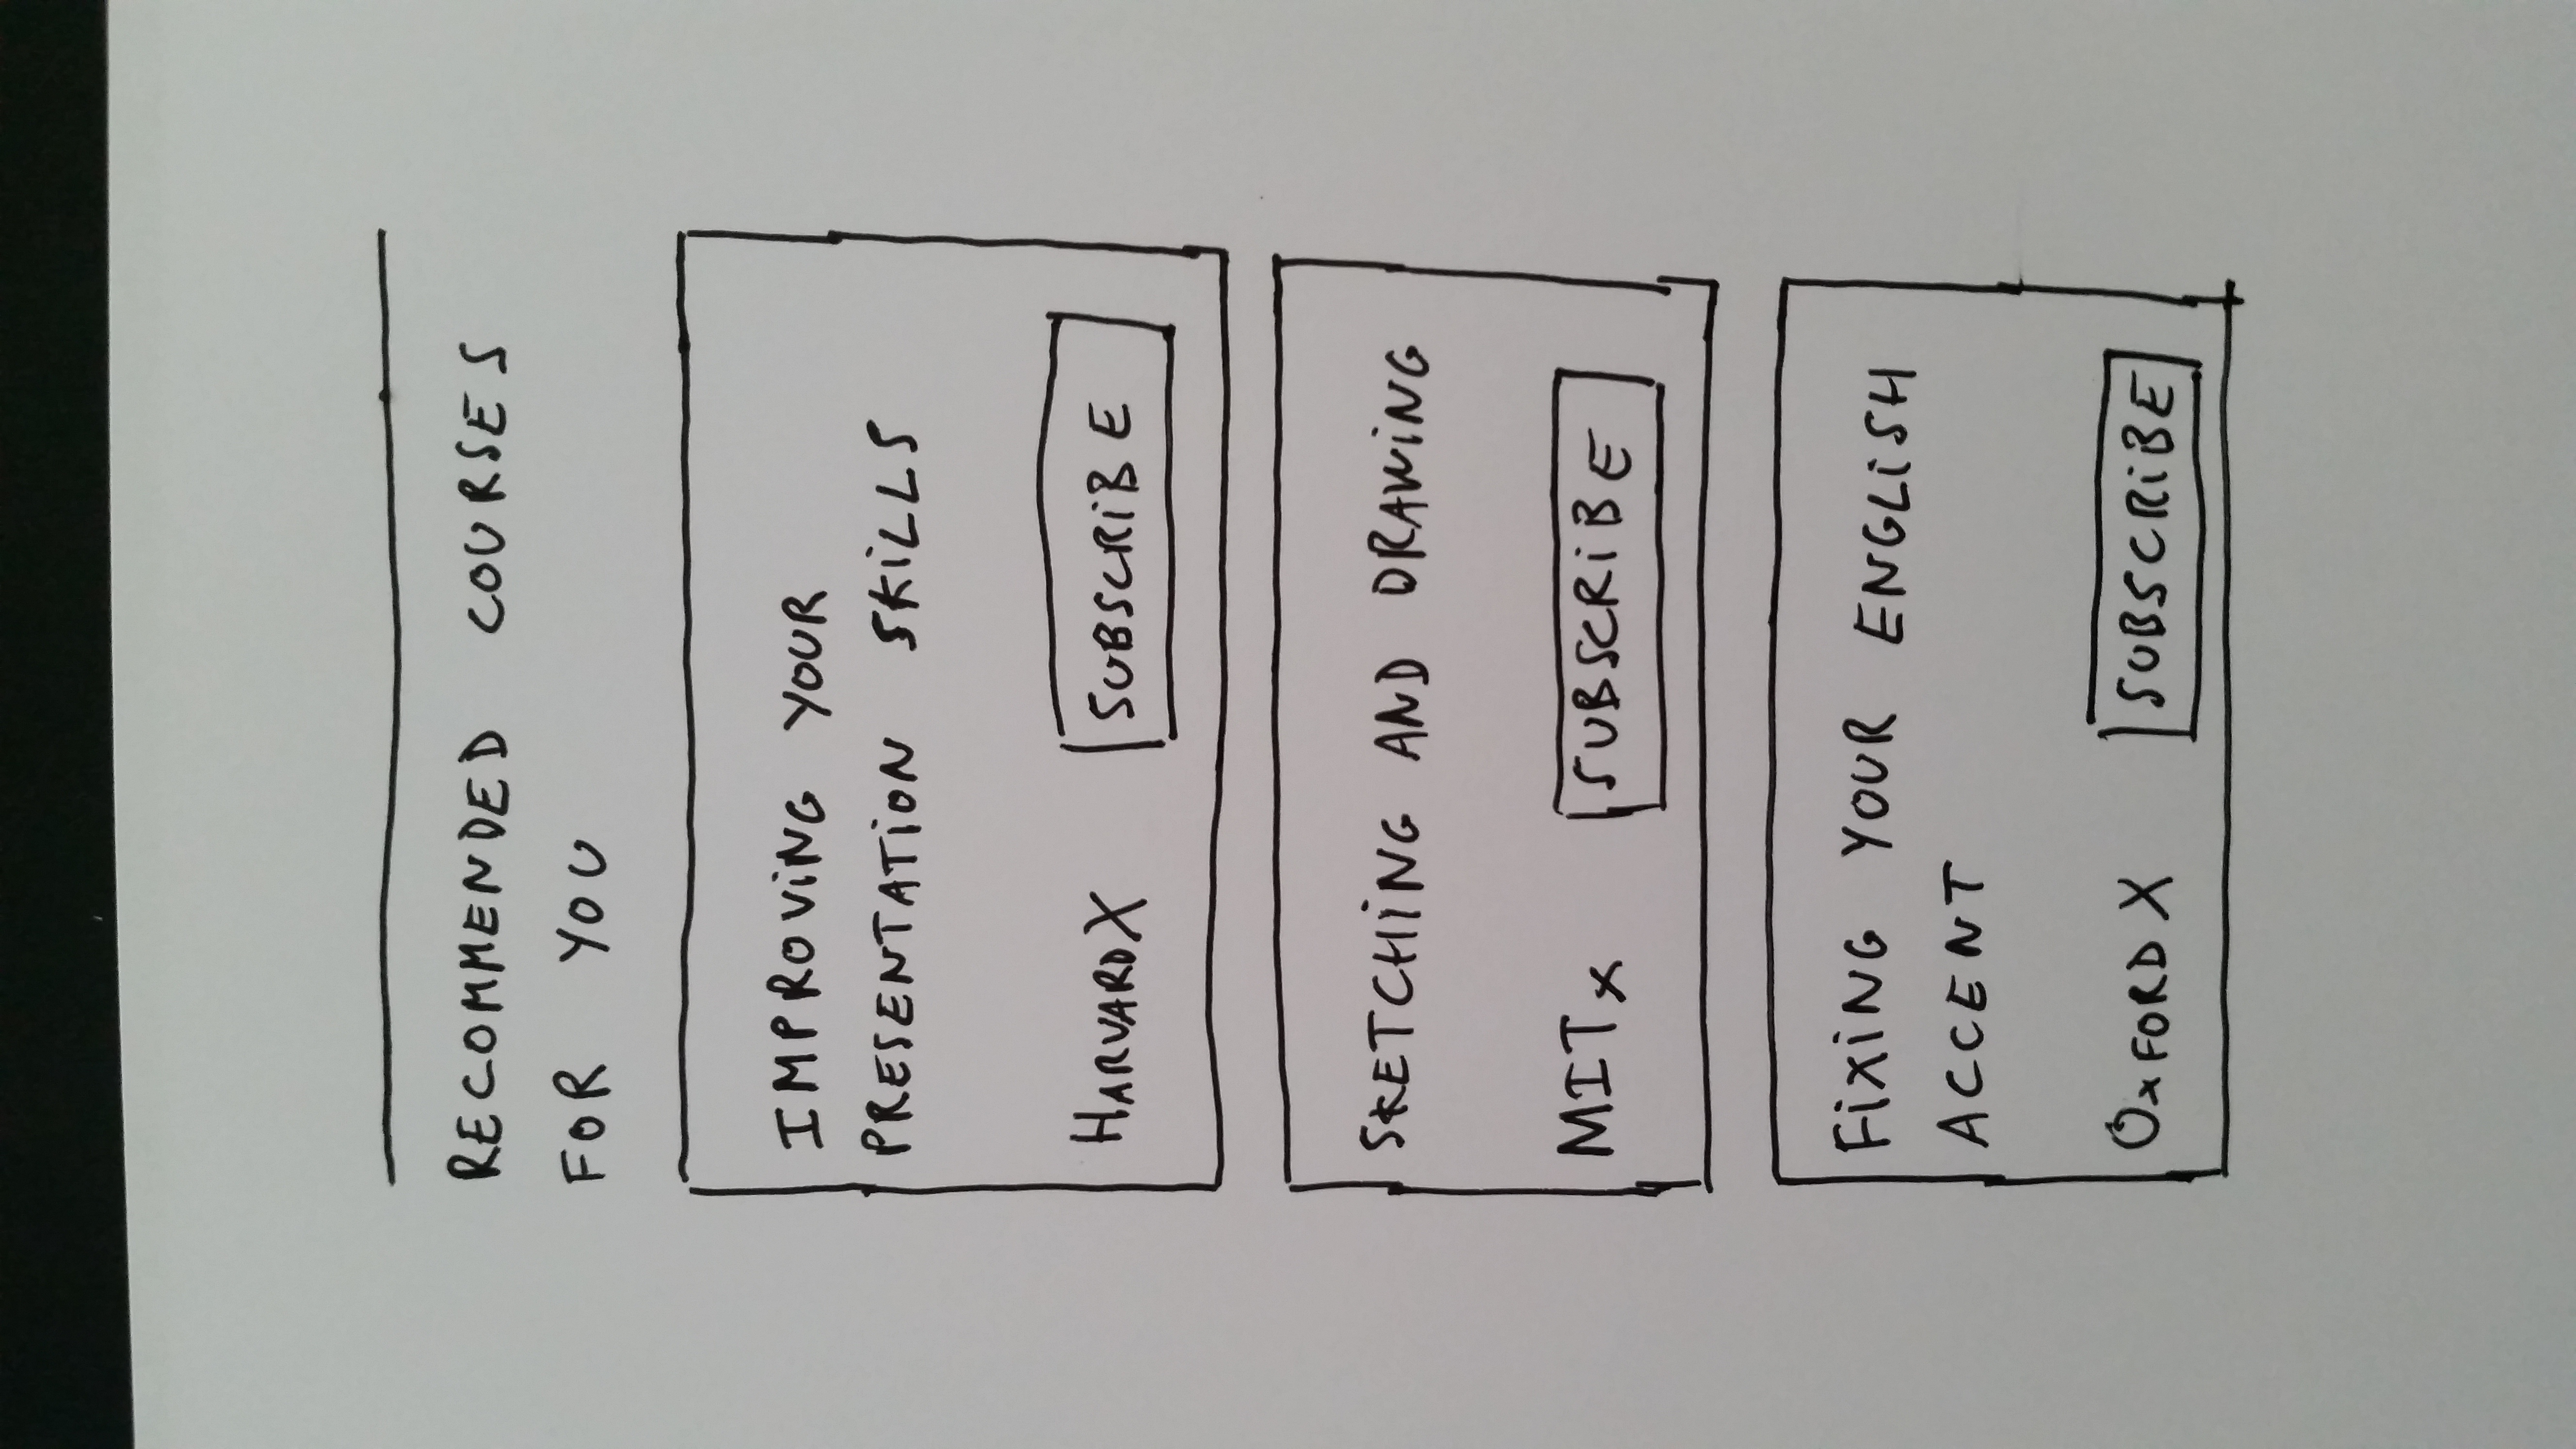 RECOMMENDED COURSES
FOR YOU
IMPROViNG YOUR
PRESENTATiON SKiLLS
HARVARDX SUBSCRiBE
SKETCHiNG AND DRAWiNG
MITx SUBSCRiBE
FiXiNG YOUR ENGLiSH
ACCENT
OxFORDX SUBSCRiBE